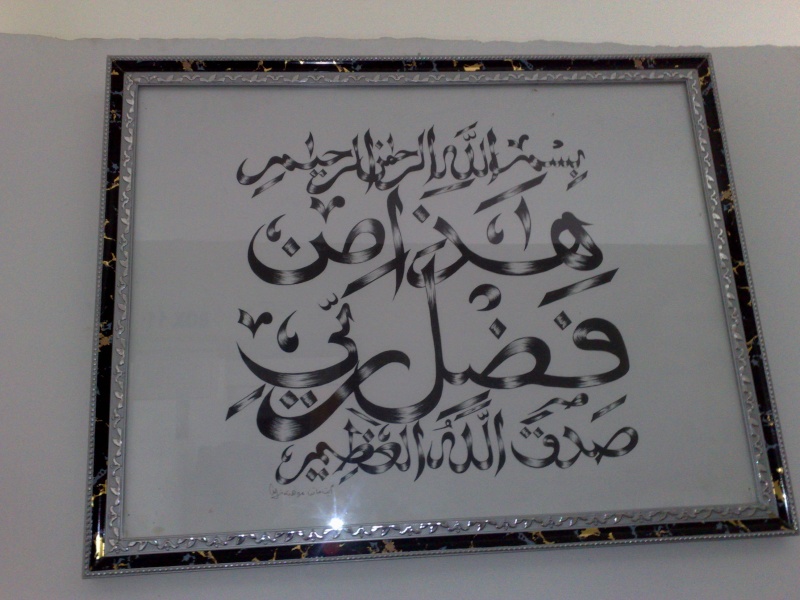 بِسْمِ اللَّهِ الرحمن الرحيم
هَذَا مِنْ
فَضْلِ رَبِّي
صَدَقَ اللَّهُ العَظِيم